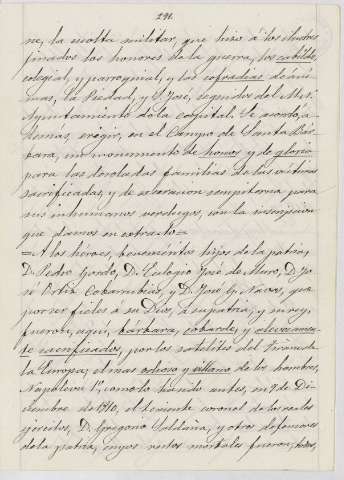 291.
ne, la escolta militar, que hizo á los ilustres
finados los honores de la guerra, los cabildos,
colegial, y parroquial, y las cofradias de áni-
mas, la Piedad, y S. José, seguidos del M. Y.
Ayuntamiento de la capital. Se acordó, a-
demas, erigir, en el Campo de Santa Bár-
bara, un monumento de honor y de gloria
para las desoladas familias de las victimas
sacrificadas, y de execracion sempiterna para
sus inhumanos verdugos, con la inscripcion
que damos en extracto=
=A los héroes, beneméritos hijos de la patria,
D. Pedro Gordo, D. Eulogio José de Muro, D. Jo-
sé Ortiz Cobarrubias, y D. José N. Navas, que
por ser fieles á su Dios, á su patria, y a su rey,
fueron, aqui, bárbara, cobarde, y alevosamen-
te sacrificados, por los satélites del tirano de
la Europa, el mas odioso y villano de los hombres,
Napoleon 1º, como lo habia antes, en 7 de Di-
ciembre de 1810, el teniente coronel de los reales
ejercitos, D. Gregorio Saldaña, y otros defensores
de la patria, cuyos restos mortales fueron, todos,